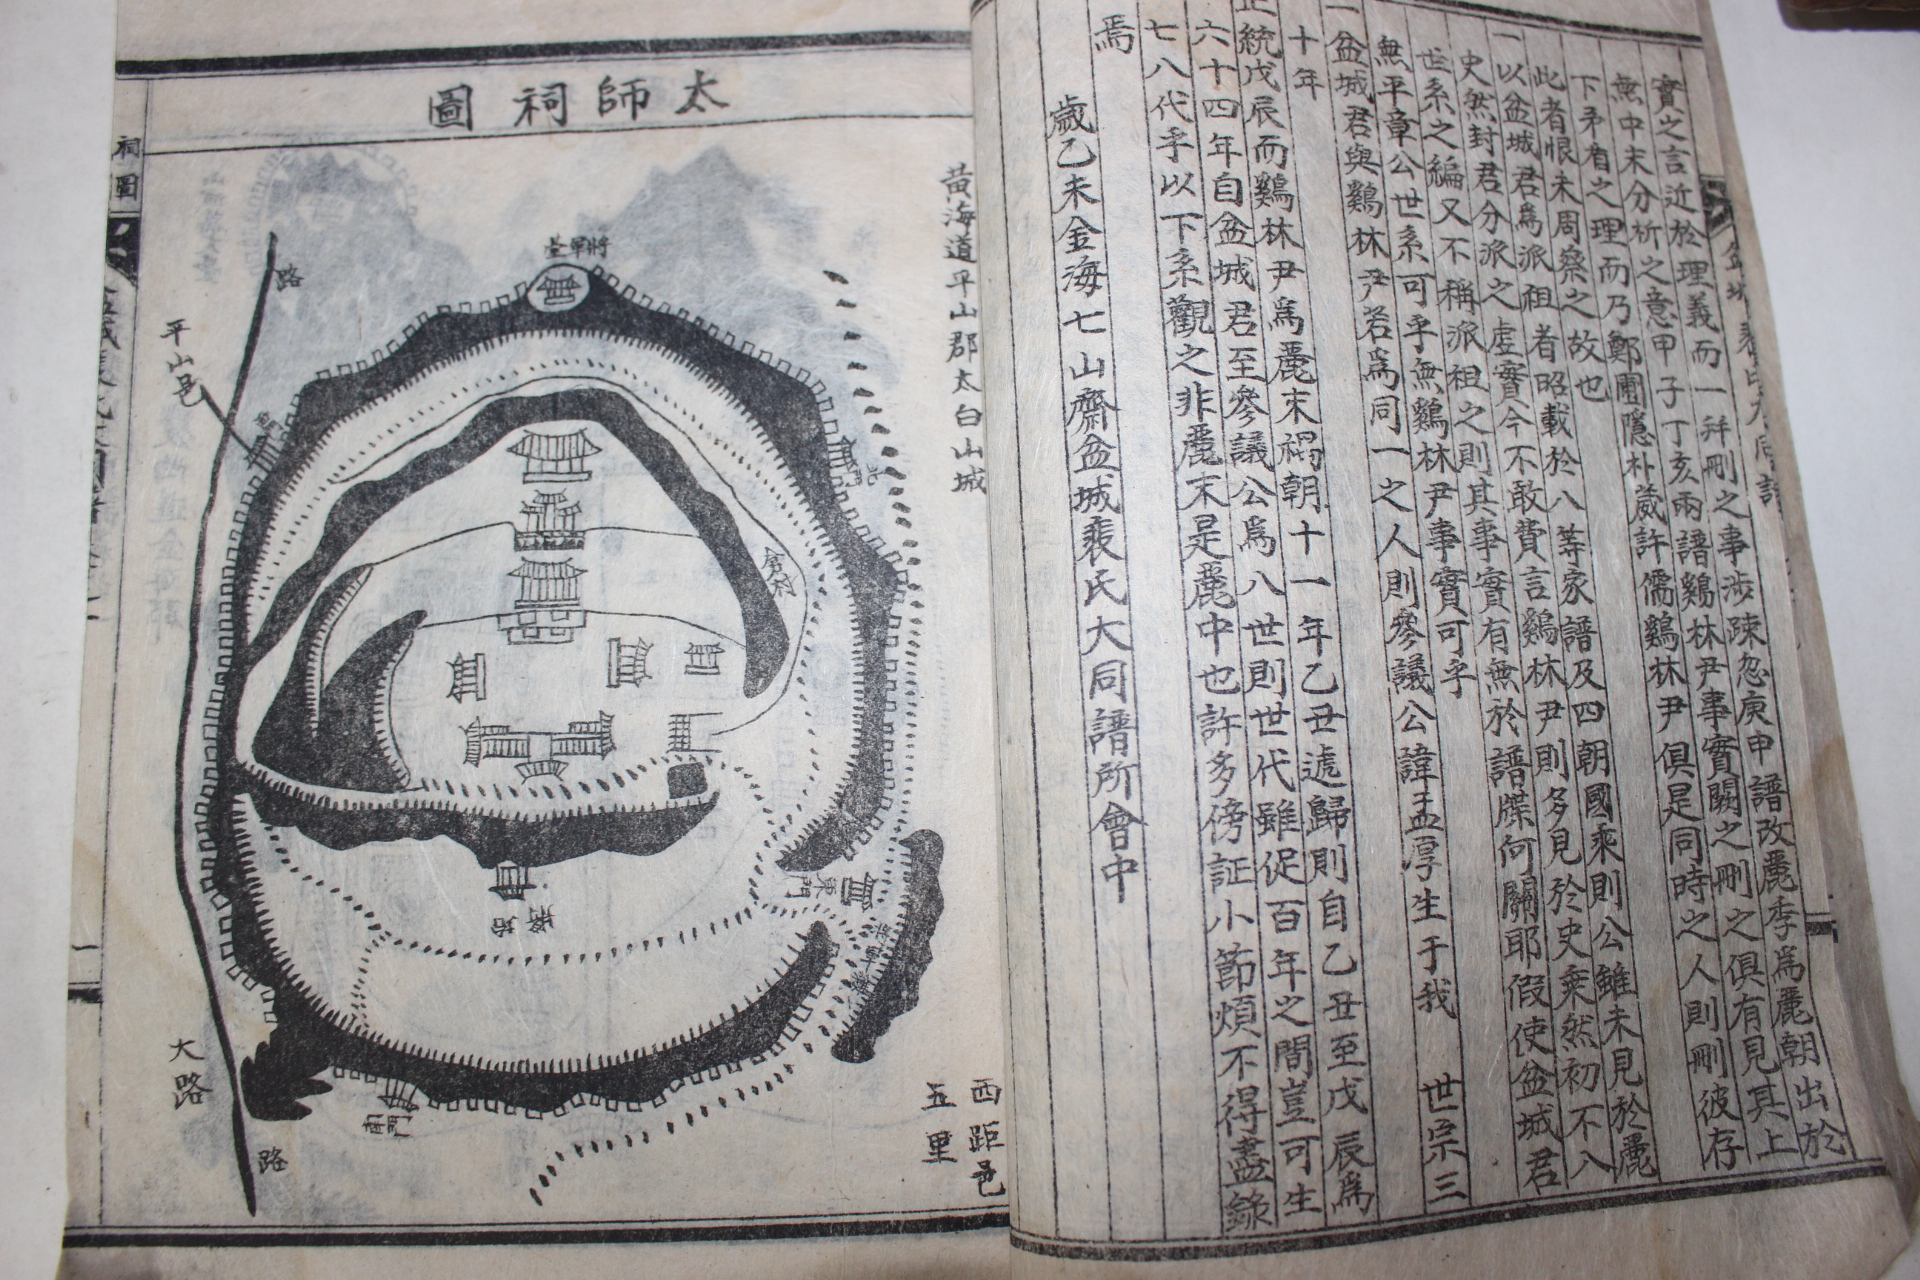 實之言近於理義而一幷刪之事涉疎忽庚申譜改麗季爲麗朝出於
無中末分析之意甲子丁亥兩譜鷄林尹事實闕之刪之俱有見其上
下矛盾之理而乃鄭圃隱朴葳許儒鷄林尹俱是同時之人則刪彼存
此者恨未周察之故也
一以盆城君爲派祖者昭載於八等家譜及四朝國乘則公雖未見於麗
史然封君分派之虛實今不敢費言鷄林尹則多見於史乘然初不入
世系之編又不稱派祖之則其事實有無於譜牒何關耶假使盆城君
無平章公世系可乎無鷄林尹事實可乎
一盆城君與鷄林尹若爲同一之人則參議公諱孟厚生于我 世宗三
十年
正統戊辰而鷄林尹爲麗末禑朝十一年乙丑遞歸則自乙丑至戊辰爲
六十四年自盆城君至參議公爲八世則世代雖促百年之間豈可生
七八代乎以下系觀之非麗末是麗中也許多傍証小節煩不得盡錄
焉
歲乙未金海七山齋盆城裵氏大同譜所會中
太師祠圖
黃海道平山郡太白山城
西距邑
五里
將軍臺
路
平山邑
北門
倉村
東門
南門
大路
路
祠圖
一